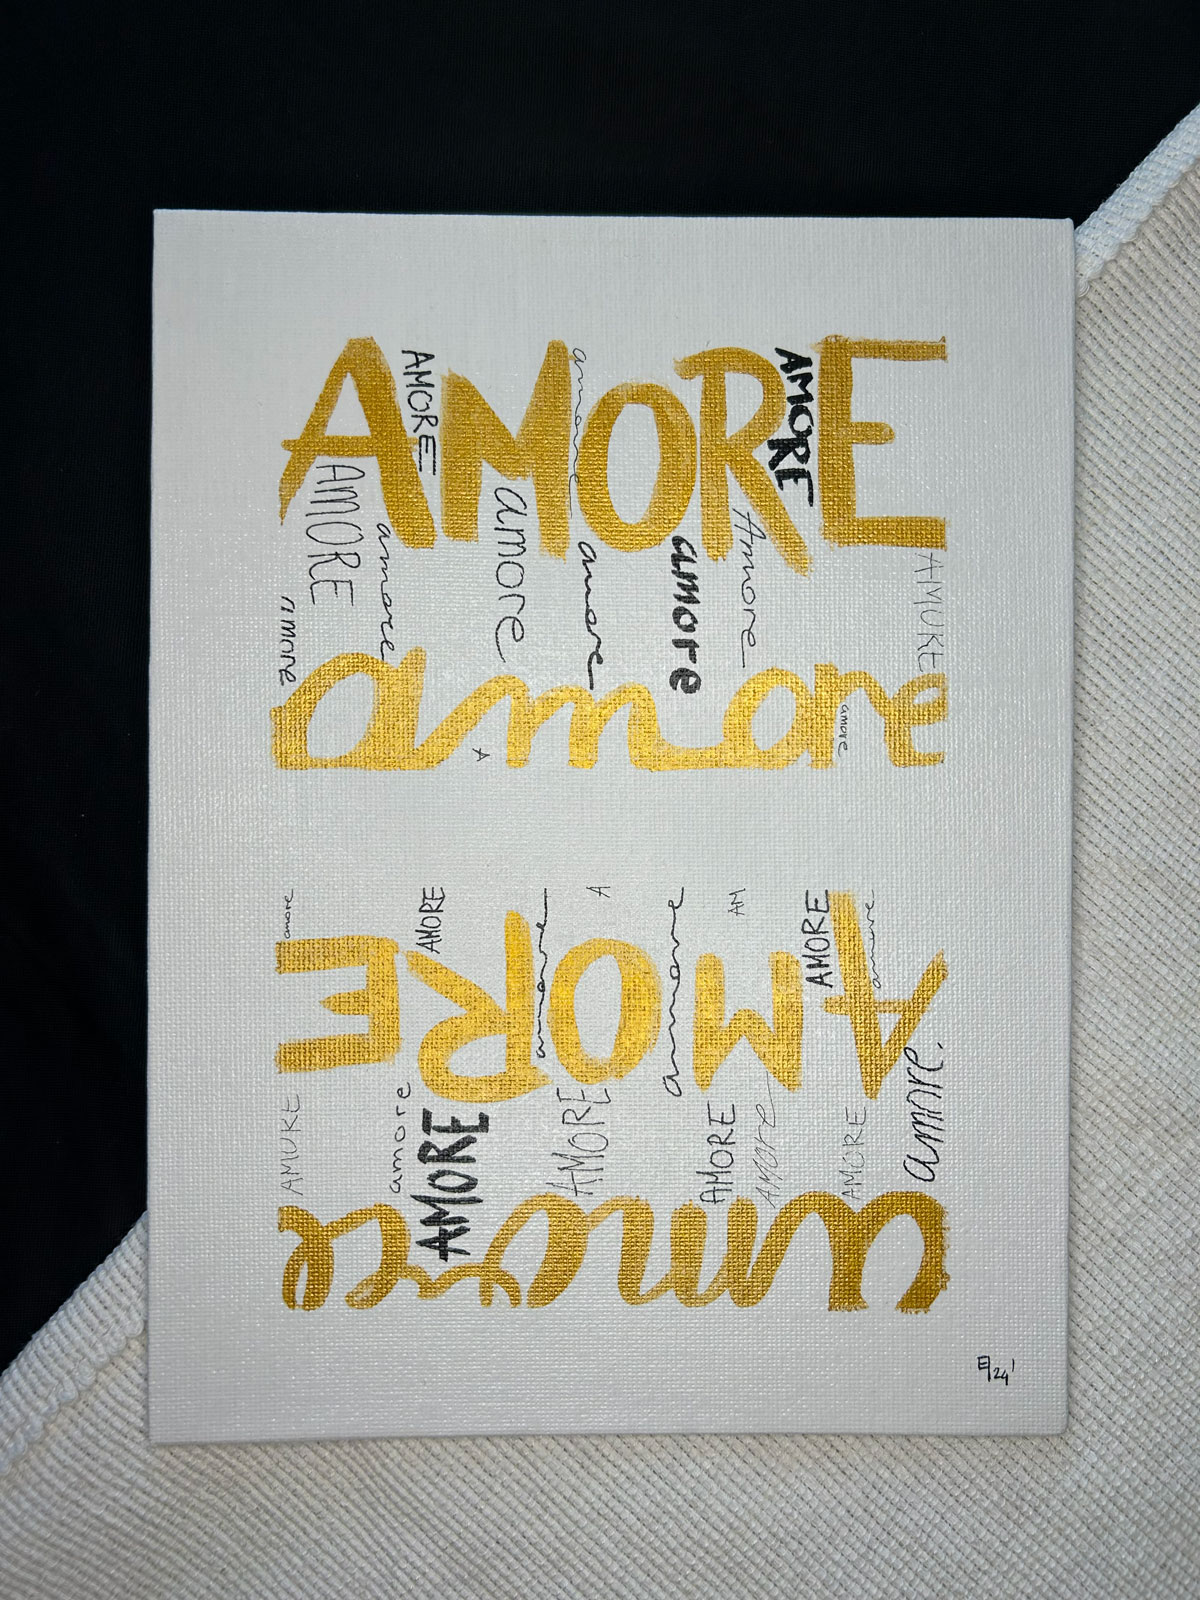 AMORE
AMORE
amore
AMORE
AMORE
amore
amore
amore
amore
Amore
AMUKE
amore
amore
amore
A
amore
amore
AMORE
amore
A
amore
AM
AMORE
amore
AMORE
AMUKE
amore
AMORE
AMORE
AMORE
AMORE
AMORE
amore.
amore
E/24'